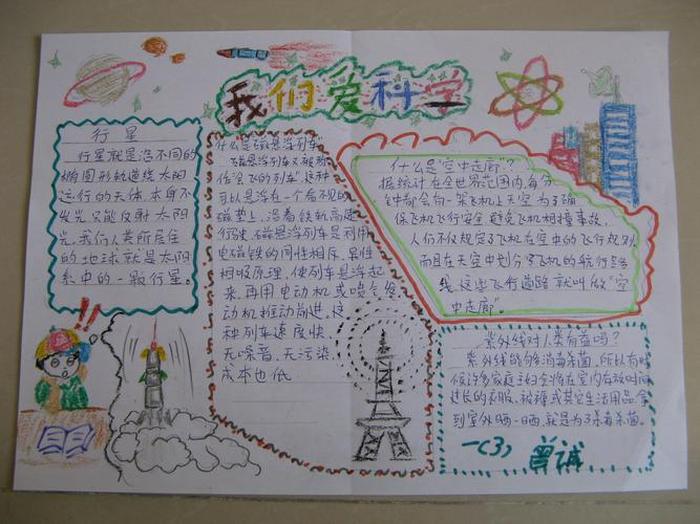 我们爱科学
行星
行星就是沿不同的
椭圆形轨道绕太阳
运行的天体,本身不
发光,只能反射太阳
光,我们人类所居住
的地球就是太阳
系中的一颗行星。
什么是磁悬浮列车
磁悬浮列车又被称
作“没飞的列车”,这种
可以悬浮在一个看不见的
磁垫上,沿着铁轨高速
行驶。磁悬浮列车是利用
电磁铁的同性相斥,异性
相吸原理,使列车悬浮起
来,再用电动机或喷气发
动机推动前进。这
种列车速度快,
无噪音,无污染,
成本也低
什么是“空中走廊”?
据统计,在全世界范围内,每分
钟都会有一架飞机上天空,为了确
保飞机飞行安全,避免飞机相撞事故,
人们不仅规定了飞机在空中的飞行规则,
而且在天空中划分了飞机的航行路
线,这些飞行道路就叫做“空
中走廊”。
紫外线对人类有益吗?
紫外线能够消毒杀菌,所以有时
候许多家庭主妇会将在室内存放时间
过长的衣服、被褥或其它生活用品拿
到室外晒一晒,就是为了杀毒杀菌。
一(3) 曾诚